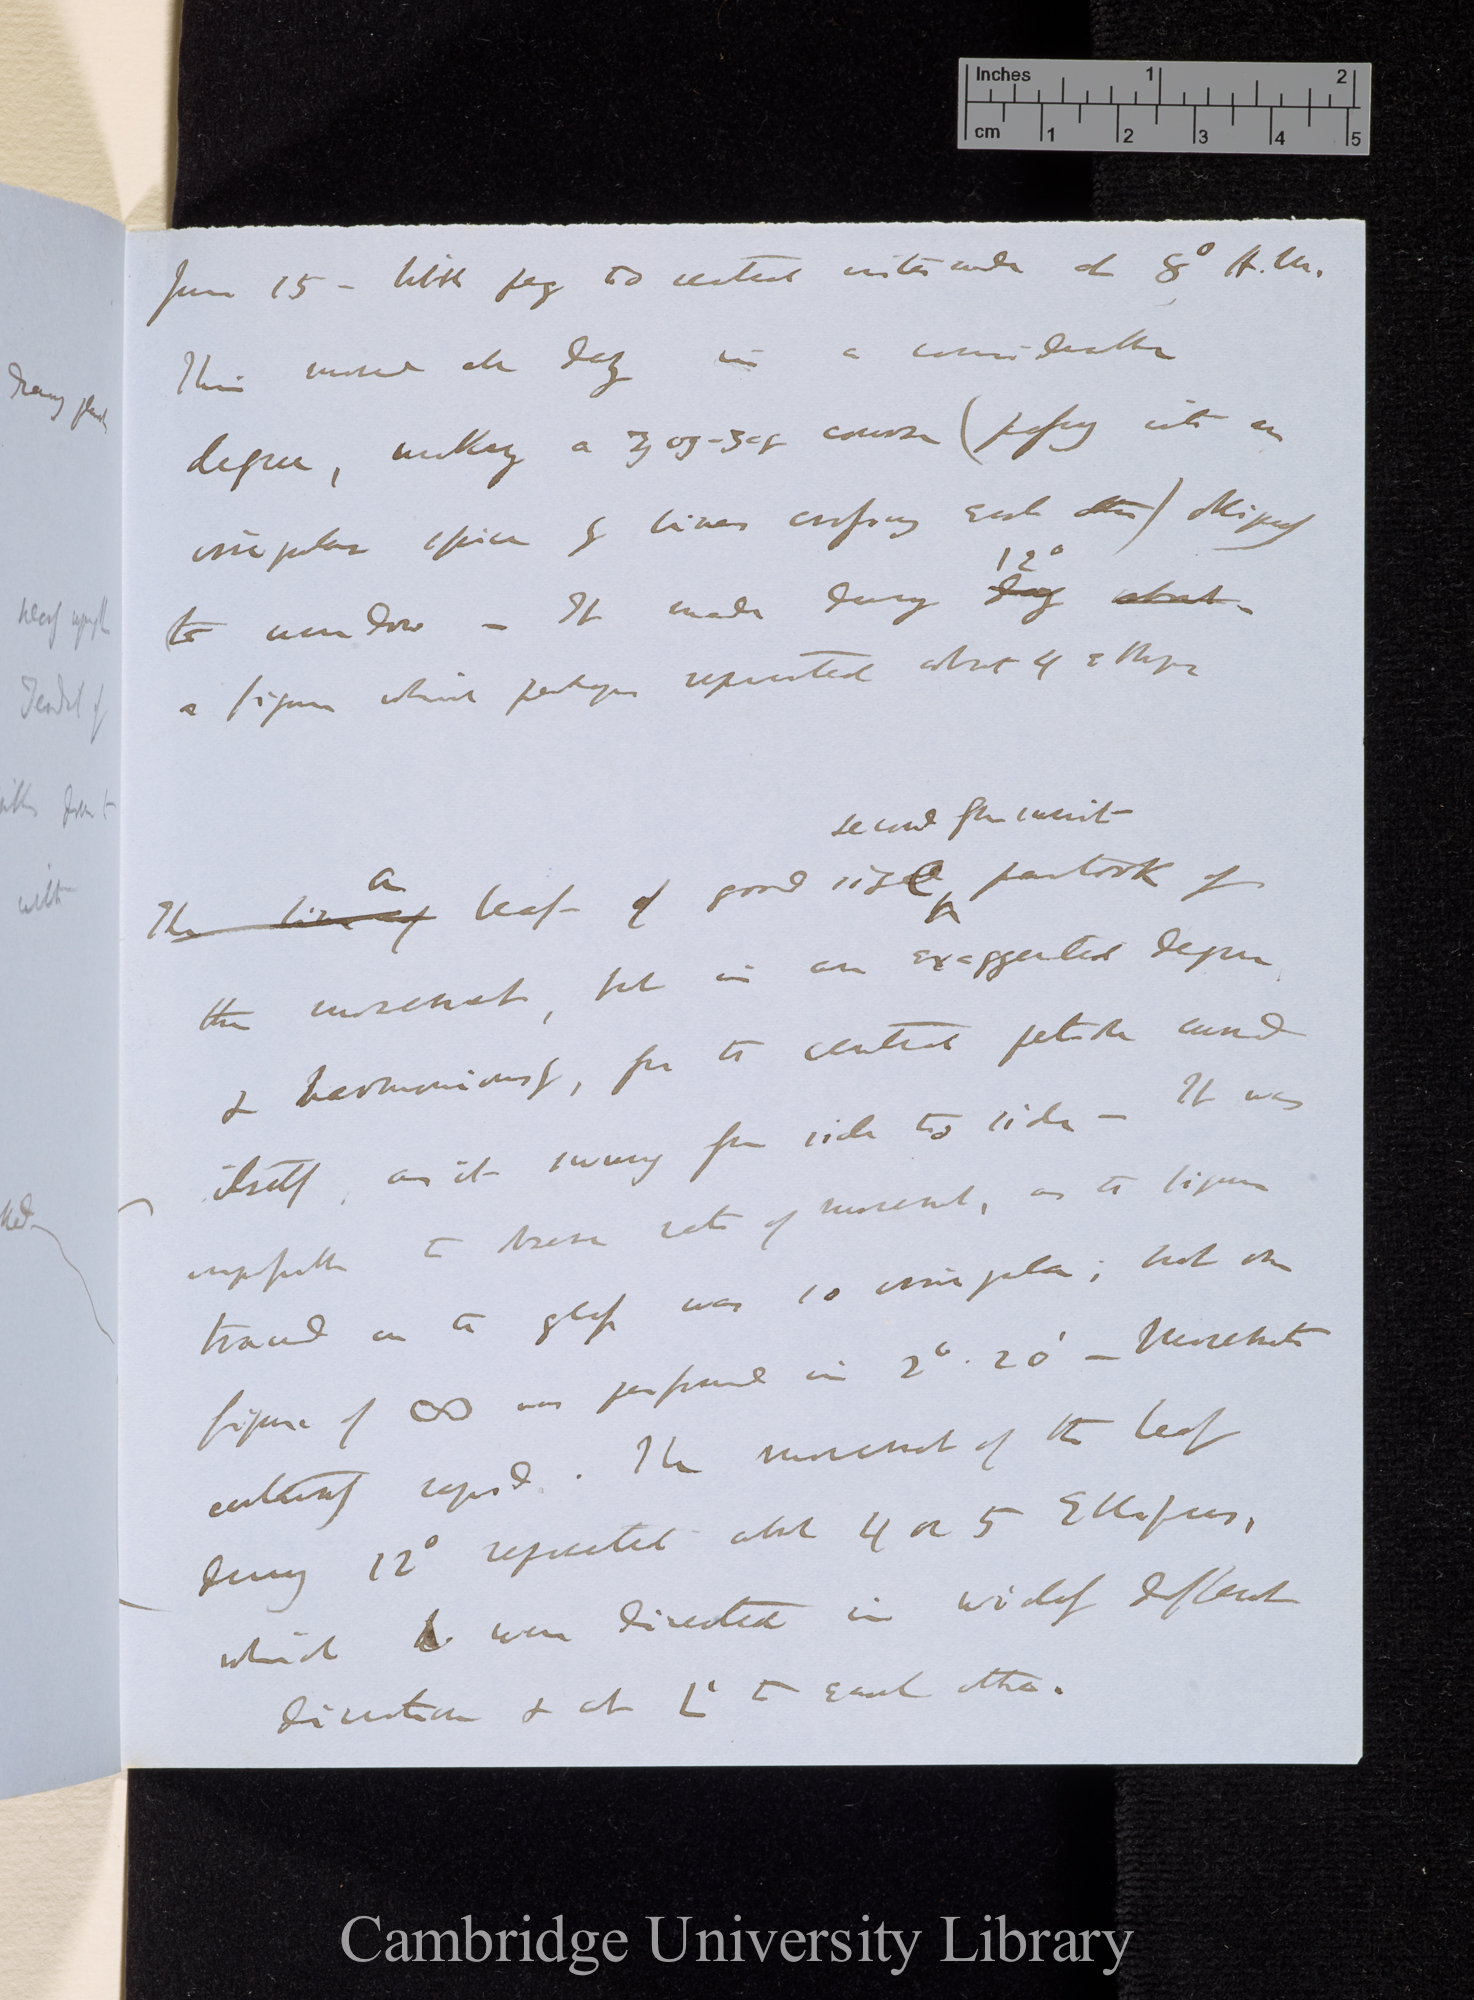 Inches 1 2
cm 1 2 3 4 5
June 15 – little peg to central internode at 8° A.M.
This moved all day in a considerable
degree, making a zig-zag course (passing into an
irregular spire of lines crossing each other) obliquely
to window – It made during day about
12°
a figure which perhaps represented about 4 ellipses
second filament
The line of leaf of good size partook of
a
the movement, but in an exaggerated degree
& harmoniously, for the central petiole curved
itself, as it swung from side to side – It was
impossible to observe rate of movement, as the figure
traced on the glass was so irregular; but one
figure of ∞ was performed in 2° . 20' – Movements
certainly rapid. The movement of the leaf
during 12° represented about 4 or 5 Ellipses,
which were directed in widely different
direction & at L to each other.
Cambridge University Library